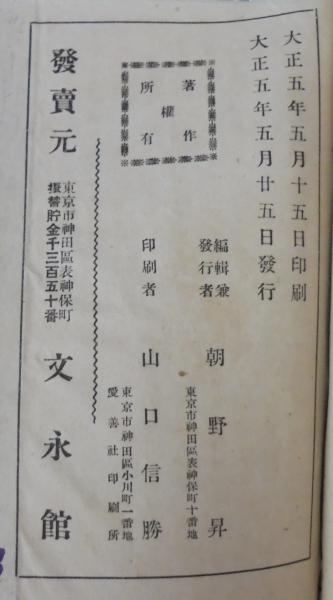 大正五年五月十五日印刷
大正五年五月廿五日發行
著作
權
所有
編輯兼
發行者
朝野昇
東京市神田區表神保町十番地
印刷者
山口信勝
東京市神田區小川町一番地
愛善社印刷所
發賣元
東京市神田區表神保町
振替貯金千三百五十番
文永館